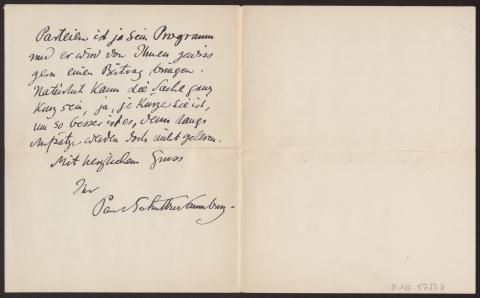 Parteien ist ja sein Programm
und er wird von Ihnen gewiss
gern einen Beitrag bringen.
Natürlich kann die Sache ganz
kurz sein, ja, je kürzer sie ist,
um so besser ist es, denn lange
Aufsätze werden doch nicht gelesen.
Mit herzlichem Gruss
Ihr
Paul Schultze Naumburg.